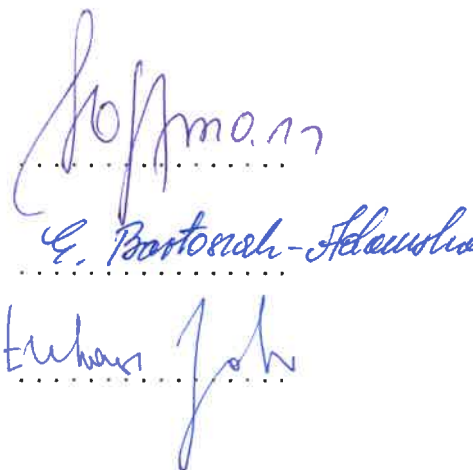 Hoffmann
G. Bartosiak-Adamska
Łukasz